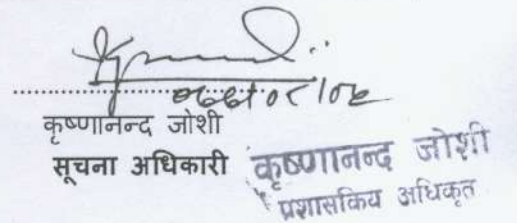 कृष्णानन्द जोशी
सूचना अधिकारी
कृष्णानन्द जोशी
प्रशासकिय अधिकृत